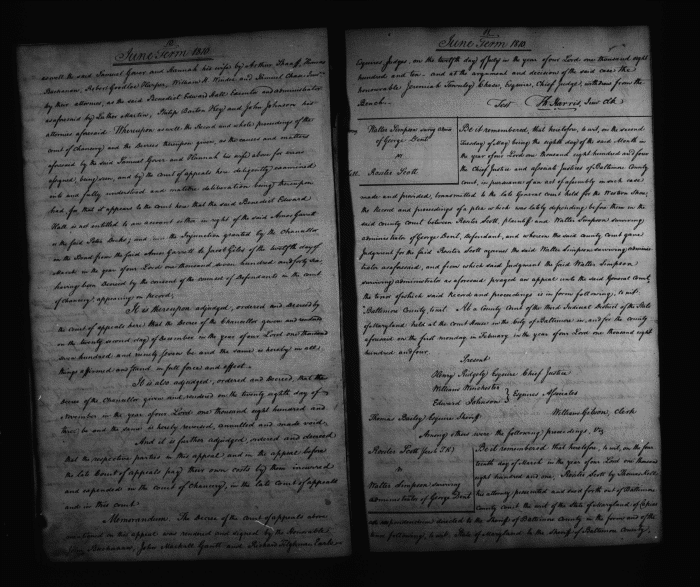 June Term 1810
as well the said Samuel Gover and Hannah his wife by Arthur Shaaff, Thomas
Buchanan, Robert Goodloe Harper, William H. Winder and Samuel Chase Junr
by their attorney, as the said Benedict Edward Hall Executor and administrator
as aforesaid by Luther Martin, Philip Barton Key and John Johnson his
attorney aforesaid Whereupon as well the Record and whole proceedings of the
court of Chancery and the Decree thereupon given, as the causes and matters
aforesaid by the said Samuel Gover and Hannah his wife above for errors
assigned being seen, and by the court of appeals here diligently examined
and fully understood and mature deliberation being thereupon
had, for that it appears to the court here that the said Benedict Edward
Hall is not entitled to an account either in right of the said Amos Garrett
or the said John Parks; and the Injunction granted by the Chancellor
in the Bond from the said Amos Garrett to Jacob Giles of the twelfth day of
March in the year of our Lord one thousand seven hundred and forty six
having been Decreed by the consent of the counsel of Defendants in the court
of chancery appearing in Record;
It is thereupon adjudged, ordered and decreed by
the court of appeals here, that the Decree of the Chancellor given and rendered
on the twenty second day of December in the year of our Lord one thousand
seven hundred and ninety four be and the same is hereby in all
things affirmed and stand in full force and effect.
It is also adjudged, ordered and Decreed, that the
Decree of the Chancellor given and rendered on the twenty eighth day of
November in the year of our Lord one thousand eight hundred and
three, be and the same is hereby reversed, annulled and made void.
And it is further adjudged, ordered and decreed
that the respective parties in this appeal and in the appeal before
the late Court of appeals pay their own costs by them incurred
and expended in the court of Chancery, in the late Court of appeals
and in this court.
Memorandum. The Decree of the Court of appeals above
mentioned in this appeal was and signed by the Honorable
John Buchanan, John Mackall Gantt and Richard Tilghman Earle
June Term 1810
Esquires Judges, on the twelfth day of July in the year of our Lord one thousand eight
hundred and ten. and at the argument and decision of the said case the
honourable Jeremiah Townley Chase, Esquire, Chief Judge, withdrew from the
Bench.
Test Th Harris, Junr Clk.
Walter Simpson surving admr
of George Dent
vs
Rawter Scott
Be it remembered, that heretofore, to wit, on the second
Tuesday of May being the eighth day of the said Month in
the year of our Lord one thousand eight hundred and four
the Chief Justice and associate Justices of Baltimore County
court, in pursuance of an act of assembly in such case
made and provided, transmitted to the late General court here for the Western Shore,
the Record and proceedings of a plea which was lately depending before them in the
said county court between Rawter Scott, plaintiff and Walter Simpson surviving
administrator of George Dent, Defendant, and wherein the said county court gave
Judgment for the said Rawter Scott against the said Walter Simpson surviving adminis-
trator as aforesaid, and from which said Judgment the said Walter Simpson
surviving administrator as aforesaid prayed an appeal unto the said General court,
the tenor of which said Record and proceedings is in form following, to wit.
Baltimore County to wit. At a County Court of the third Judicial District of the State
of Maryland held at the court House in the City of Baltimore in and for the county
aforesaid on the first monday in February, in the year of our Lord one thousand eight
hundred and four.
Present
Henry Ridgely Esquire Chief Justice
William Winchester
Edward Johnson } Esquires Associates
Thomas Bailey Esquire Sheriff William Gibson, Clerk
Among others were the following proceedings, Viz.
Rawter Scott
vs
Walter Simpson surviving
administrator of George Dent
Be it remembered that heretofore, to wit, on the four
teenth day of March in the year of our Lord one thousand
eight hundred and one, Rawter Scott by Thomas Kell
his attorney prosecuted and sued forth out of Baltimore
County court the writ of the State of Maryland of Capias
ad respondendum directed to the Sheriff of Baltimore County in the form and of the
tenor following, to wit. State of Maryland to the Sheriff of Baltimore County,